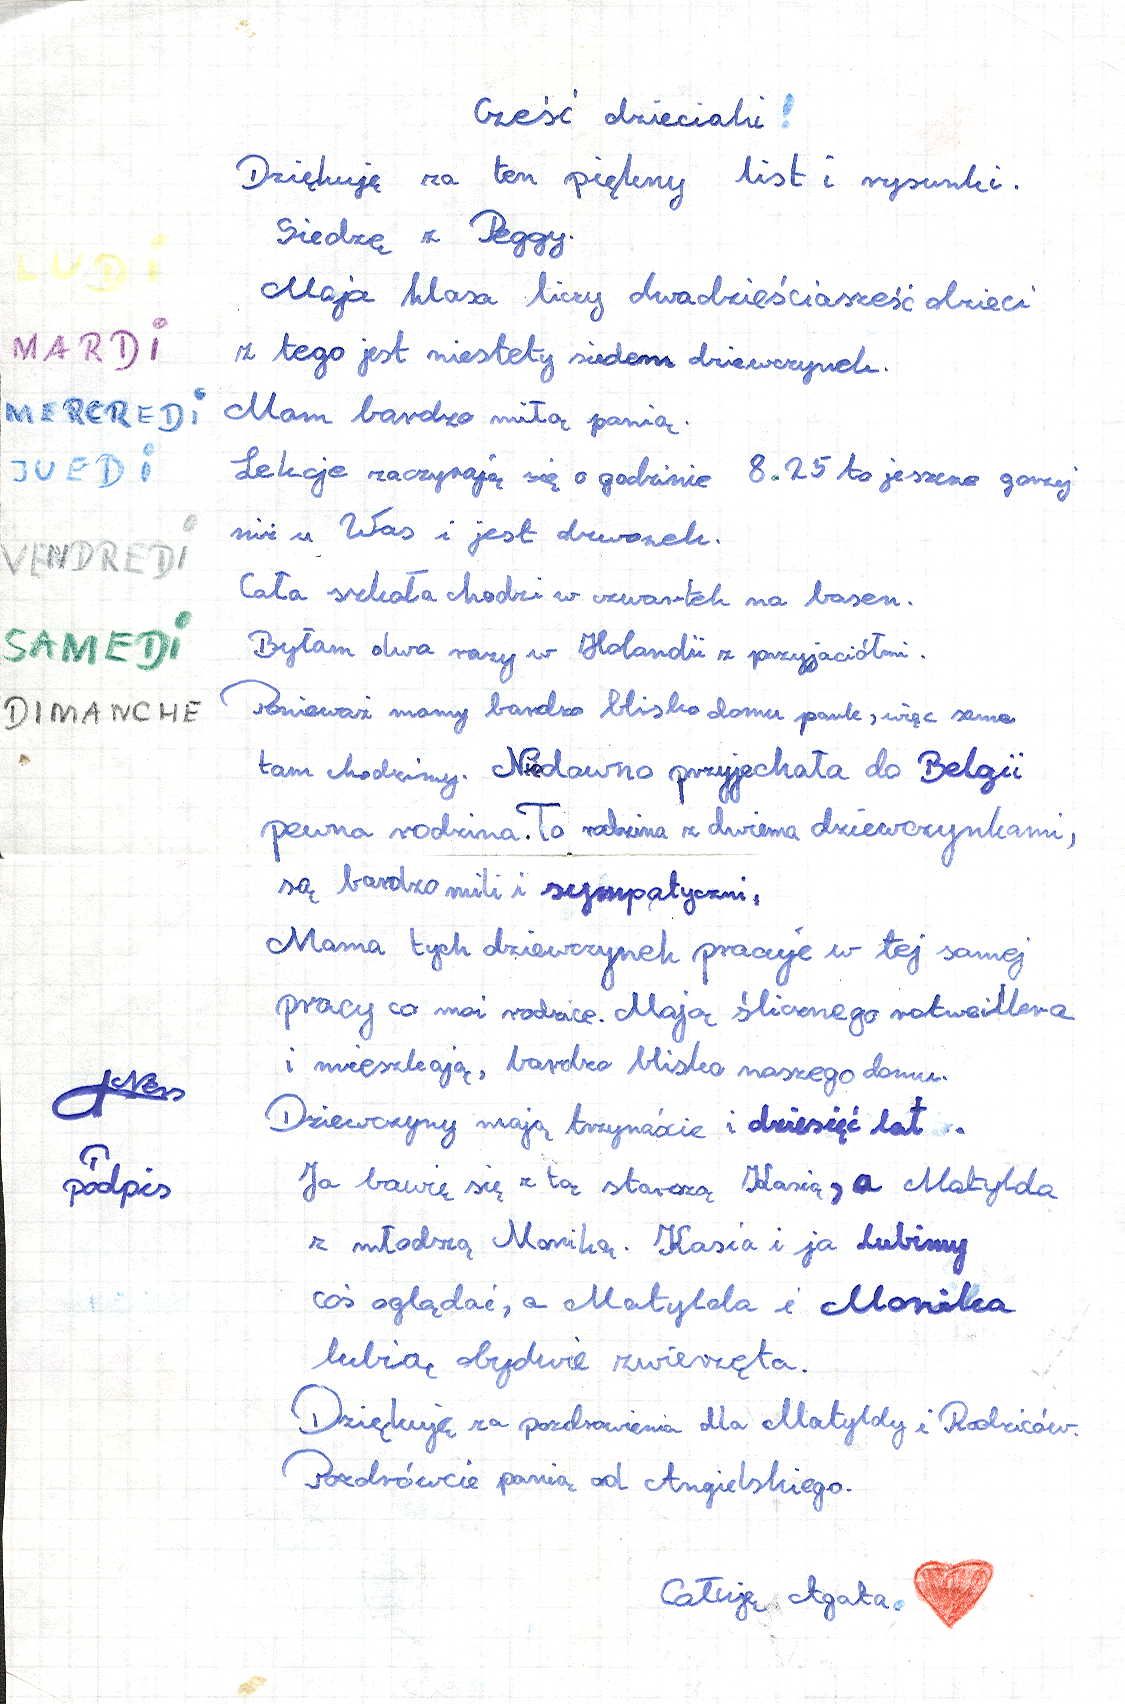 Cześć dzieciaki!
Dziękuję za ten piękny list i rysunki.
Siedzę z Peggy.
Moja klasa liczy dwadzieściasześć dzieci
z tego jest niestety siedem dziewczynek.
Mam bardzo miłą panią.
Lekcje zaczynają się o godzinie 8.25 to jeszcze gorzej
niż u Was i jest dzwonek.
Cała szkoła chodzi w czwartek na basen.
Byłam dwa razy w Holandii z przyjaciółmi.
Ponieważ mamy bardzo blisko domu park, więc same
tam chodzimy. Niedawno przyjechała do Belgii
pewna rodzina. To rodzina z dwiema dziewczynkami,
są bardzo mili i sympatyczni,
Mama tych dziewczynek pracuje w tej samej
pracy co moi rodzice. Mają ślicznego rotweillera
i mieszkają, bardzo blisko naszego domu.
Dziewczyny mają trzynaście i dziesięć lat.
Ja bawię się z tą starszą Kasią, a Matylda
z młodszą Moniką. Kasia i ja lubimy
coś oglądać, a Matylda i Monika
lubią obydwie zwierzęta.
Dziękuję za pozdrowienia dla Matyldy i Rodziców.
Pozdrówcie panią od Angielskiego.
Całuję Agata.
LUDI
MARDI
MERCREDI
JUEDI
VENDREDI
SAMEDI
DIMANCHE
podpis